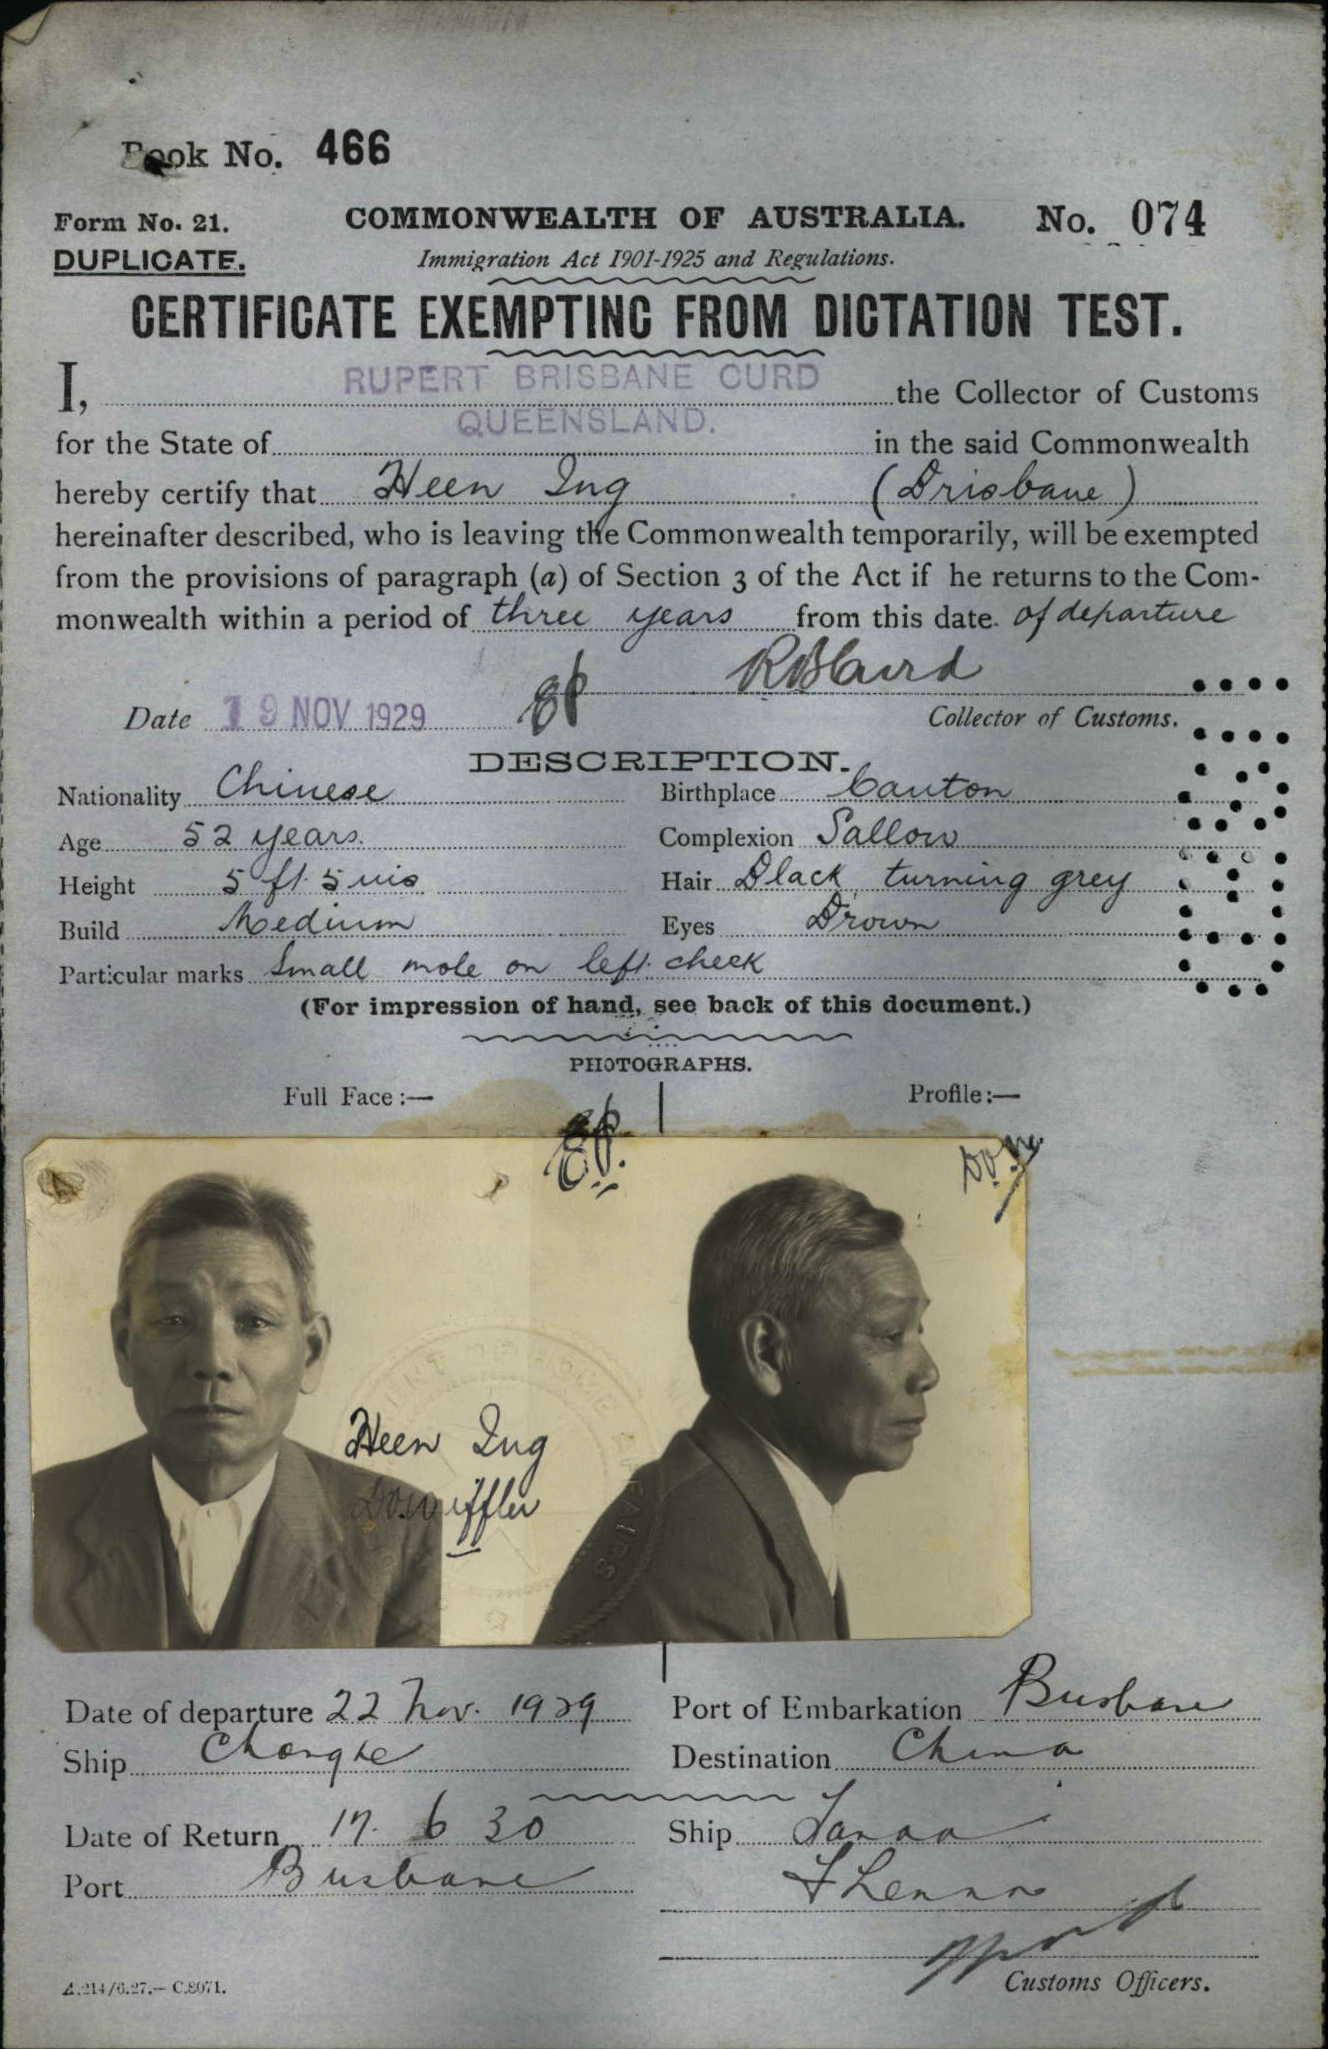 Book No. 466
Form No. 21. COMMONWEALTH OF AUSTRALIA. No. 074
DUPLICATE. Immigration Act 1901-1925 and Regulations.
CERTIFICATE EXEMPTING FROM DICTATION TEST.
I, RUPERT BRISBANE CURD the Collector of Customs
for the State of QUEENSLAND. in the said Commonwealth
hereby certify that Heen Ing (Brisbane)
hereinafter described, who is leaving the Commonwealth temporarily, will be exempted
from the provisions of paragraph (a) of Section 3 of the Act if he returns to the Com-
monwealth within a period of three years from this date. of departure
Date 19 NOV 1929 Collector of Customs.
DESCRIPTION.
Nationality Chinese Birthplace Canton
Age 52 years. Complexion Sallow
Height 5 ft. 5 ins Hair Black turning grey
Build Medium Eyes Brown
Particular marks Small mole on left cheek
(For impression of hand, see back of this document.)
PHOTOGRAPHS.
Full Face :— Profile :—
Heen Ing
Date of departure 22 Nov. 1929 Port of Embarkation Brisbane
Ship Changte Destination China
Date of Return 17. 6 30 Ship Tanda
Port Brisbane
Customs Officers.
A.214/6.27.— C.8071.